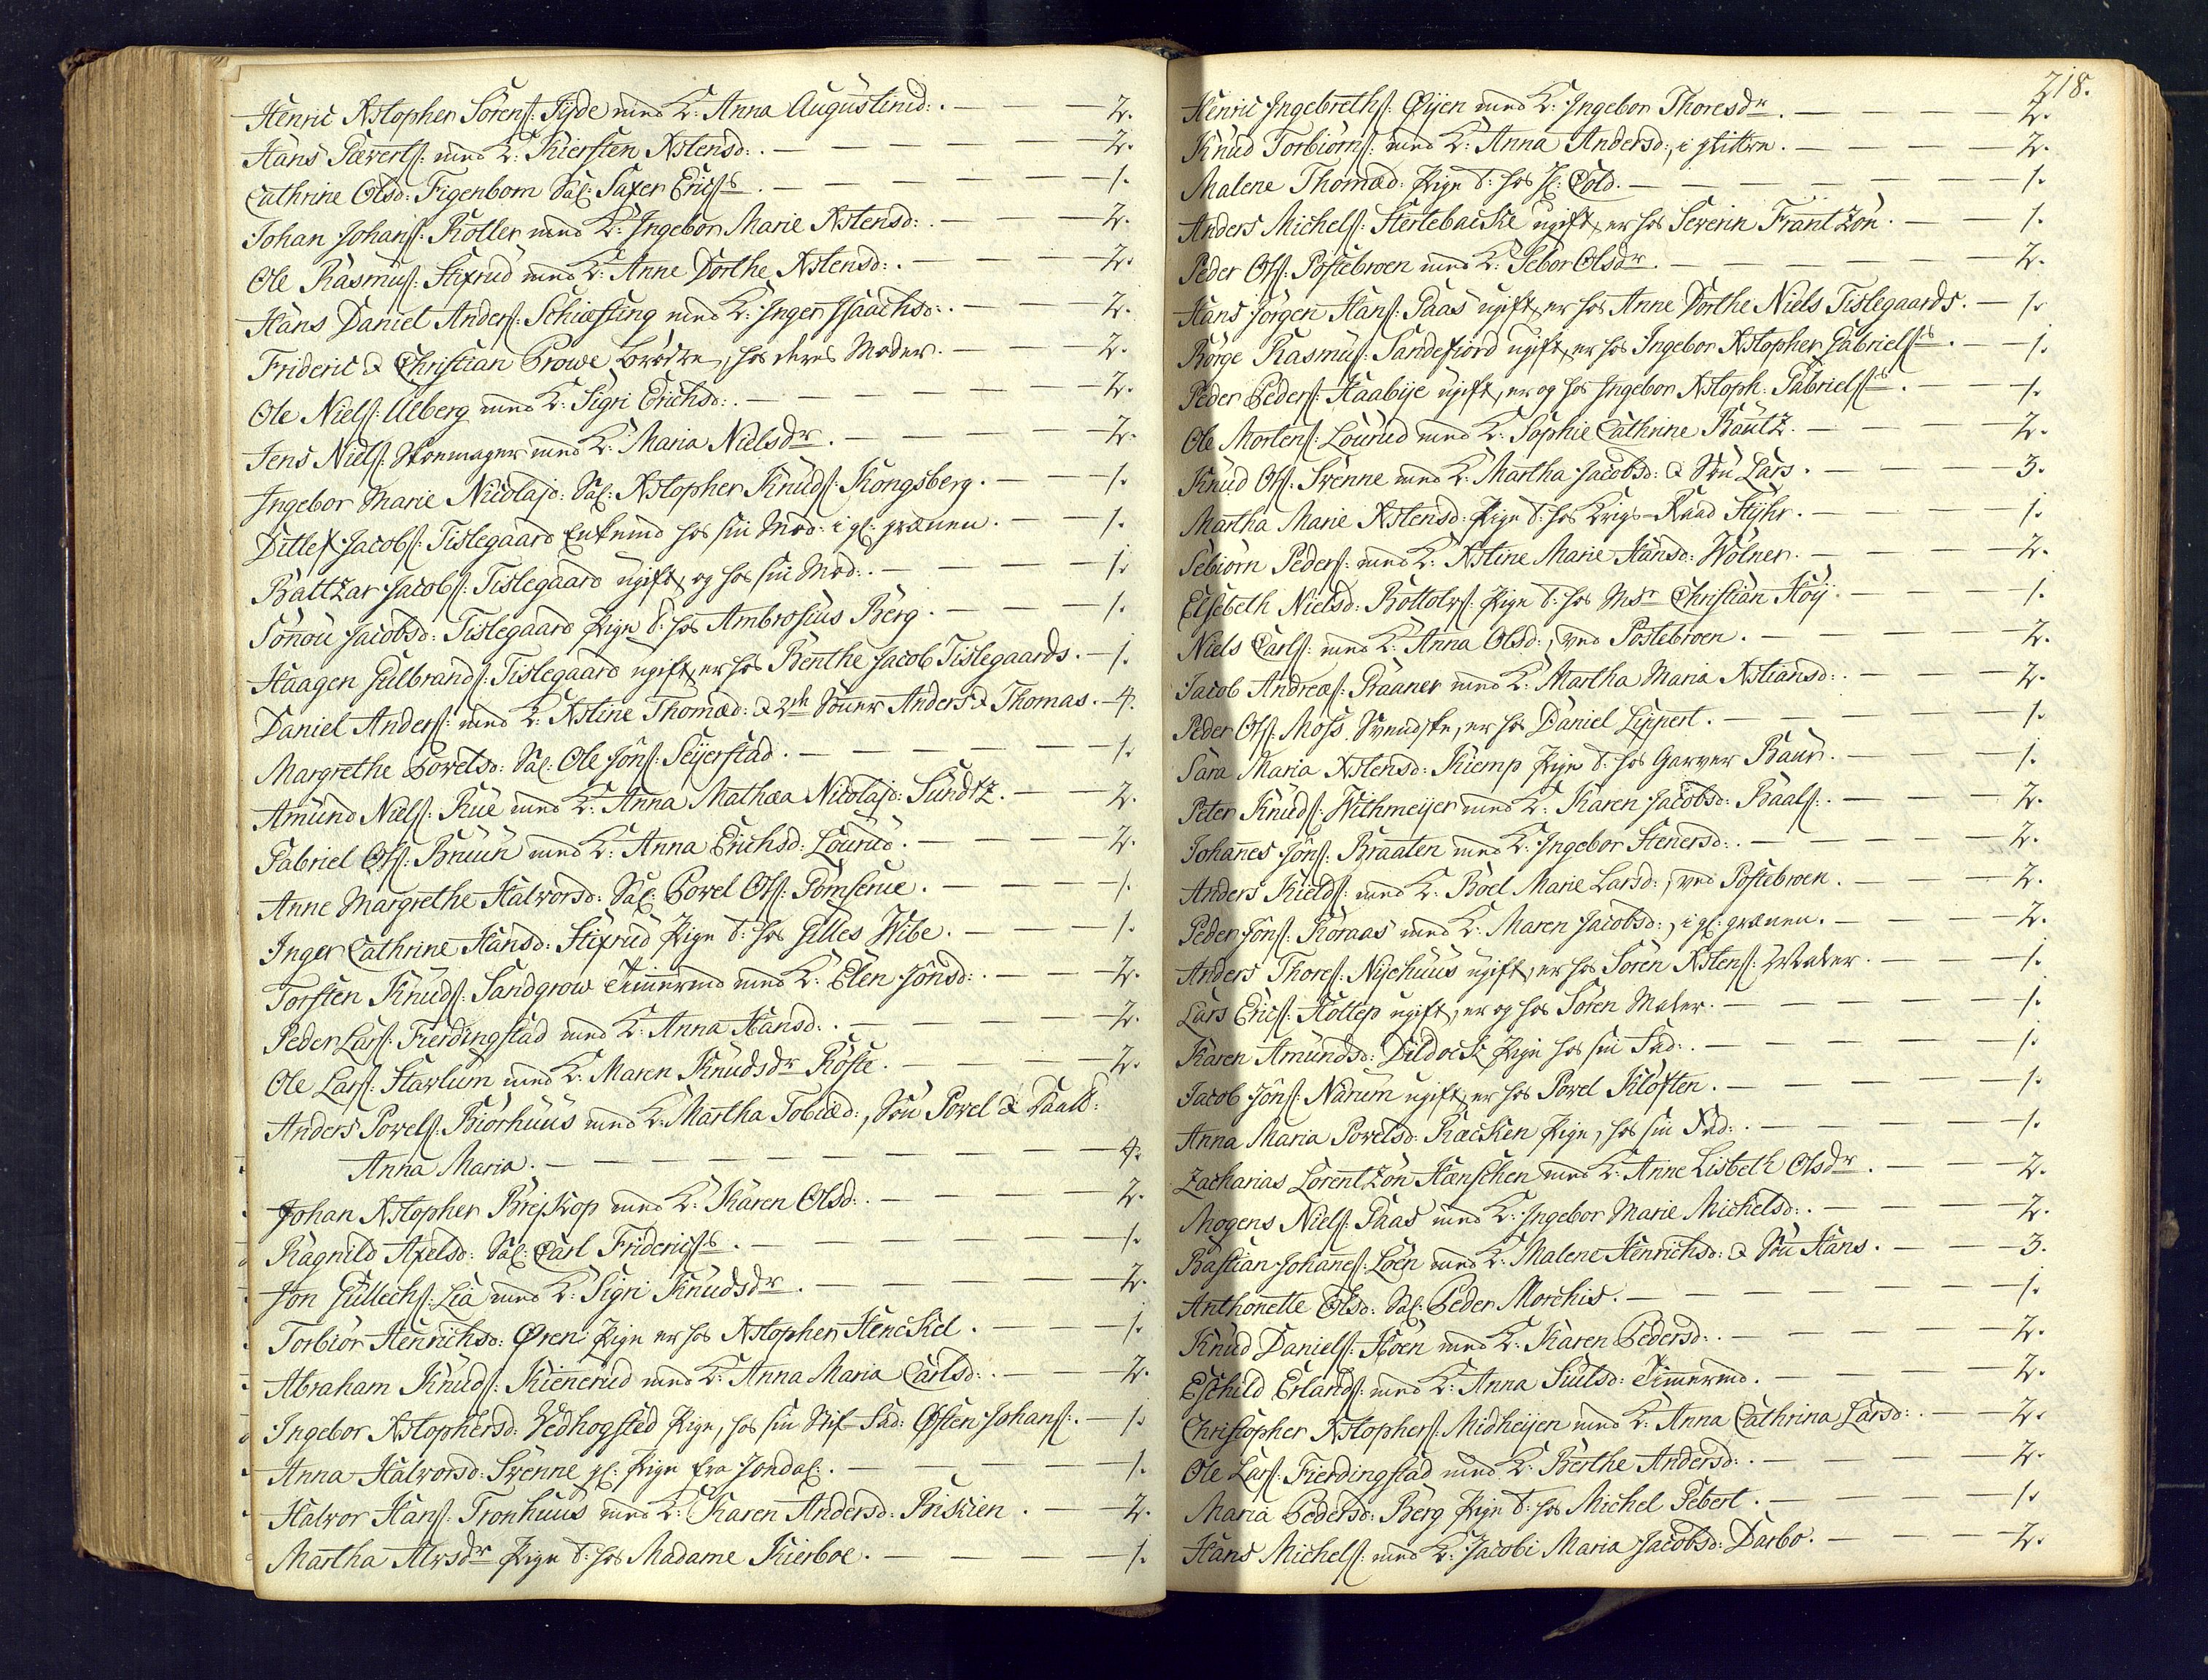 Henric Xstopher Sörenſ: Tijde med K: Anna Augustinid: . — — — 2.
Hans Gævertſ: med K: Kiersten Xstensd: . — — — — 2.
Cathrine Olsd: Figenbom Sal: Saxer Ericſs . — — — — 1.
Johan Johanſ: Koller med K: Ingebor Marie Xstensd: . — — 2.
Ole Rasmuſ: Stixrud med K: Anne Dorthe Xstensd: . — — — 2.
Hans Daniel Anderſ: Schiæſting med K: Inger Isaachsd: . — — — 2.
Frideric & Christian Prowe brödre, hos deres Moder. — — — 2.
Ole Nielſ: Ulberg med K: Sigri Erichsd: . — — — — 2.
Jens Nielſ: Skoemager med K: Maria Nielsdr . — — — — 2.
Ingebor Marie Nicolajd: Sal: Xstopher Knudſ: Kongsberg. — — 1.
Ditlef Jacobſ: Tislegaard Enkemd hos sin Mod: i gl: grænen. — — 1.
Baltzar Jacobſ: Tislegaard ugift, og hos sin Mod: . — — — 1.
Sönou Jacobsd: Tislegaard Pige t: hos Ambrosius Berg . — — — 1.
Haagen Gulbrandſ: Tislegaard ugift, er hos Benthe Jacob Tislegaards. — 1.
Daniel Anderſ: med K: Xstine Thomæd: & 2de Sönner Anders & Thomas. — 4.
Margrethe Povelsd: Sal: Ole Jönſ: Seijerstad. — — — — 1.
Amund Nielſ: Rue med K: Anna Mathæa Nicolajd: Sundtz. — — 2.
Gabriel Olſ: Bruun med K: Anna Erichsd: Lourud. — — — 2.
Anne Margrethe Halvorsd: Sal: Povel Olſ: Gomserue . — — — 1.
Inger Cathrine Hansd: Stixrud Pige t: hos Gilles Wibe. — — — 1.
Torsten Knudſ: Sandgrow Timermd med K: Elen Jönsd: . — — 2.
Peder Larſ: Fierdingstad med K: Anna Hansd: . — — — 2.
Ole Larſ: Starlum med K: Maren Knudsdr Röste . — — — 2.
Anders Povelſ: Biörhuus med K: Martha Tobiæd: , Sön Povel &
Anna Maria. — — — — — — 4.
Johan Xstopher Breiskop med K: Karen Olsd: . — — — 2.
Ragnild Axelsd: Sal: Carl Fridericſs . — — — — 1.
Jon Gullechſ: Lia med K: Sigri Knudsdr . — — — — 2.
Torbiör Henrichsd: Øren Pige er hos Xstopher Henckel . — — 1.
Abraham Knudſ: Kienerud med K: Anna Maria Carlsd: . — — 2.
Ingebor Xstophersd: Vedhogsted Pige, hos sin Stif-Fad: Østen Johanſ: . — 1.
Anna Halvorsd: Svenne gl: Pige fra Jondal: . — — — 1.
Halvor Hanſ: Tronhuus med K: Karen Andersd: Briskien . — — 2.
Martha Alvsdr Pige t: hos Madame Kierboe . — — — — 1.
218.
Henric Ingebrethſ: Øijen med K: Ingebor Thoresdr . — — — 2.
Knud Torbiörnſ: med K: Anna Andersd: , i hitten . — — — 2.
Malene Thomæd: Pige t: hos H: Cold. — — — — 1.
Anders Michelſ: Stertebacke ugift, er hos Severin Frantzön . — — 1.
Peder Olſ: Postebroen med K: Gebor Olsdr . — — — — 2.
Hans Jörgen Hanſ: Gaas ugift, er hos Anne Dorthe Niels Tislegaards. — 1.
Börge Rasmuſ: Sandefiord ugift, er hos Ingebor Xstopher Gabrielſs . — 1.
Peder Pederſ: Haabije ugift, er og hos Ingebor Xstoph: Gabrielſs . — 1.
Ole Mortenſ: Lourud med K: Sophie Cathrine Rautz. — — — 2.
Knud Olſ: Svenne med K: Martha Jacobsd: & Sön Lars . — — — 3.
Martha Marie Xstensd: Pige t: hos Krigs-Raad Stijhr . — — — 1.
Gebiörn Pederſ: med K: Xstine Marie Hansd: Wölner. — — — 2.
Elsebeth Nielsd: Bottolvſ: Pige t: hos Msr Christian Höij . — — — 1.
Niels Carlſ: med K: Anna Olsd: , ved Postebroen . — — — 2.
Jacob Andreæſ: Graaner med K: Martha Maria Xstiansd: . — — 2.
Peder Olſ: Moss. Svendske, er hos Daniel Lippert . — — — — 1.
Sara Maria Xstensd: Kiemp Pige t: hos Garver Baur. — — — 1.
Peter Knudſ: Withmeijer med K: Karen Jacobsd: Baalſ: . — — 2.
Johanes Jönſ: Braaten med K: Ingebor Stenersd: . — — — 2.
Anders Kieldſ: med K: Boel Marie Larsd: , ved Postebroen . — — — 2.
Peder Jönſ: Röraas med K: Maren Jacobsd: , i gl: grænen. — — — 2.
Anders Thoreſ: Nijehuus ugift, er hos Sören Xstenſ: Maler . — — 1.
Lars Ericſ: Holtep ugift, er og hos Sören Maler . — — — — 1.
Karen Amundsd: Dildock Pige hos sin Fad: . — — — — 1.
Jacob Jönſ: Narum ugift, er hos Povel Kloften . — — — — 1.
Anna Maria Povelsd: Ræcken Pige, hos sin Fad: . — — — — 1.
Zacharias Lorentzön Hænschen med K: Anne Lisbeth Olsdr . — — 2.
Mogens Nielſ: Gaas med K: Ingebor Marie Michelsd: . — — — 2.
Bastian Johaneſ: Löen med K: Malene Henrichsd: & Sön Hans . — — 3.
Anthonette Olsd: Sal: Peder Morchis . — — — — 1.
Knud Danielſ: Hoen med K: Karen Pedersd: . — — — — 2.
Eschild Erlandſ: med K: Anna Siulsd: Timermd. — — — 2.
Christopher Xstopherſ: Midheijen med K: Anna Cathrina Larsd: . — 2.
Ole Larſ: Fierdingstad med K: Berthe Andersd: . — — — 2.
Maria Pedersd: Berg Pige t: hos Michel Gebert . — — — — 1.
Hans Michelſ: med K: Jacobi Maria Jacobsd: Darbo. — — — 2.